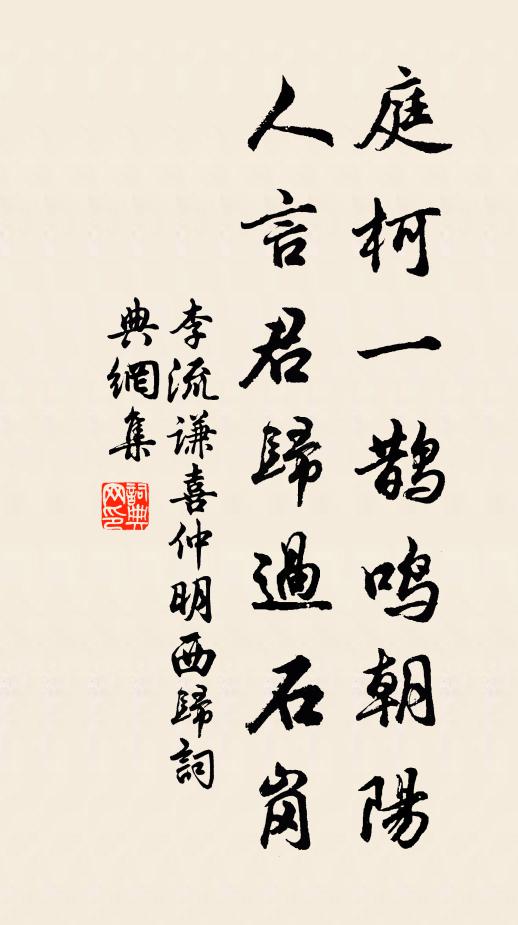 庭柯一鵲鳴朝陽
人言君歸過石岗
李流谦喜仲明西歸詞
典網集
詞典
网印